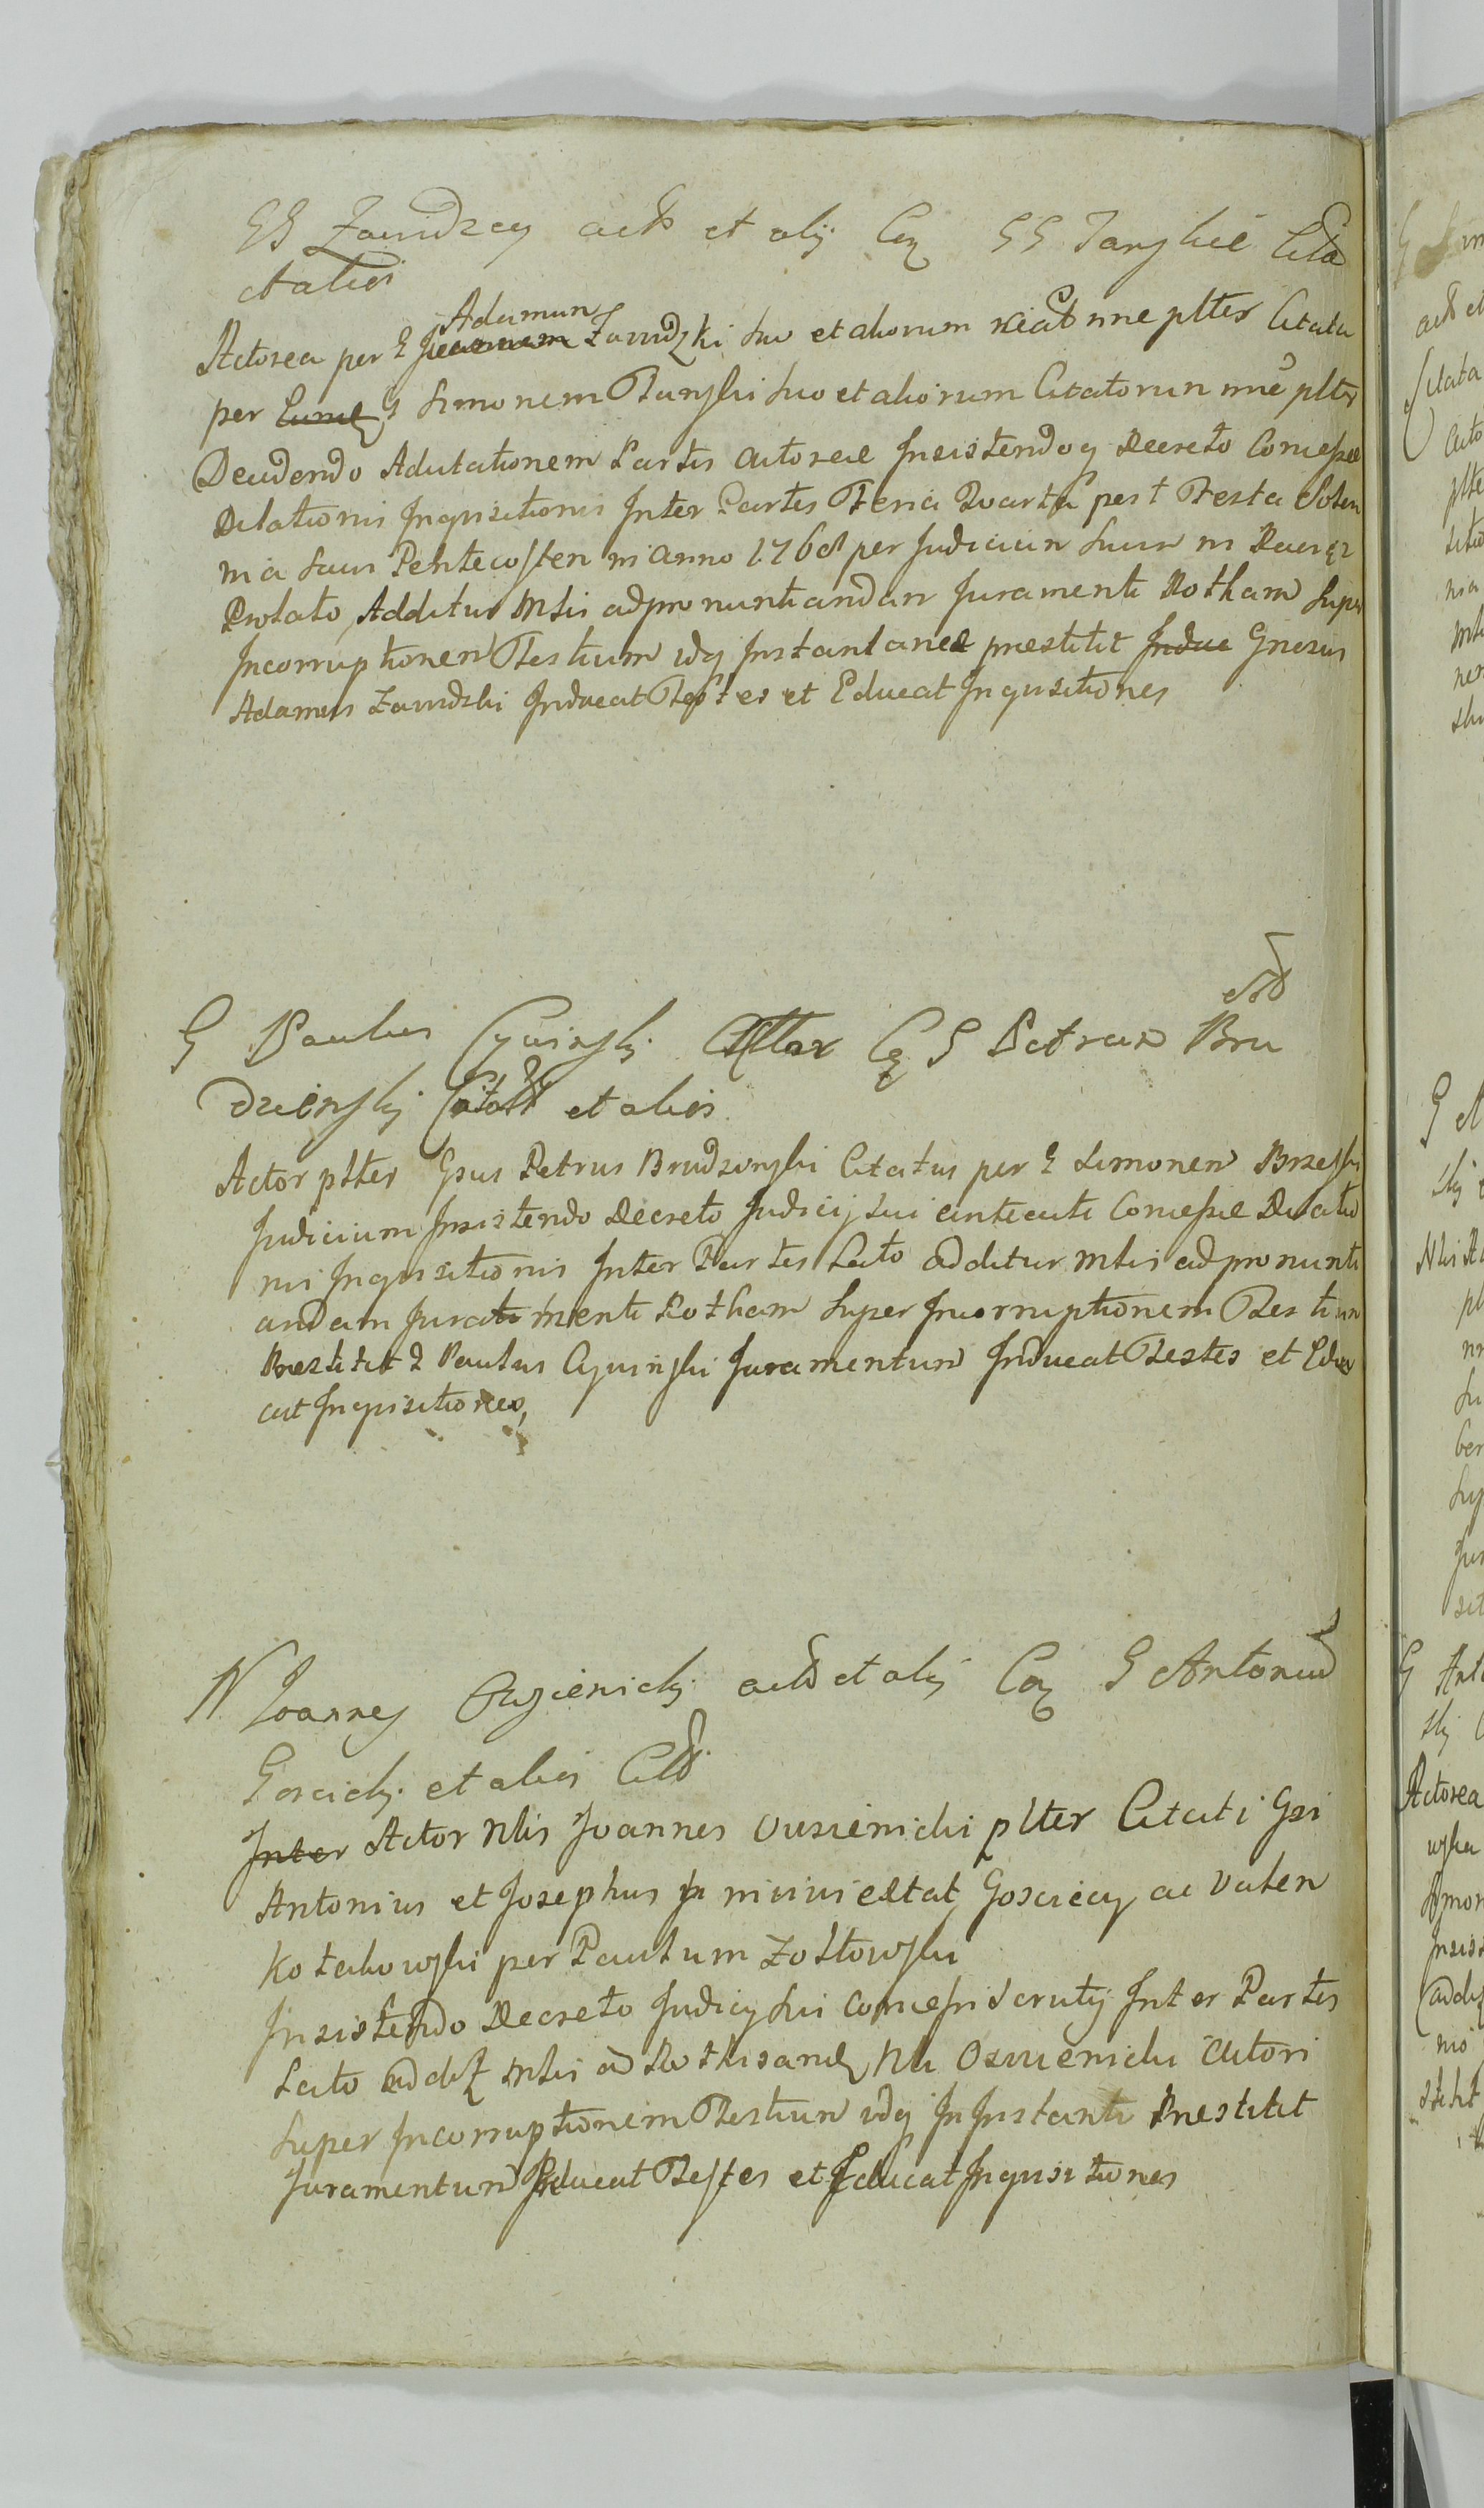 GG Zawidzcy act et alij Cq GG Tanskie Cita
et alios
Actorea per G Joannem Adamum Zawidzki suo et aliorum reiact nne plter Citata
per Eund G Simonem Tanski suo et aliorum Citatorum nne plter
Decidendo Adcitationem Partis Actoreae Insistendoq Decreto Concessae
Dilationis Inquisitionis Inter Partes Feria Quarta post Festa Solen
nia Sacri Pentecosten in Anno 1768 per Judicium Suum in
Prolato, Additur Mtris ad pronuntiandam Juramenti Rotham Super
Incorruptionem Testium idq Instantanee praestitit Induc Gnesus
Adamus Zawidzki Inducat Testes et Educat Inquisitiones
G Paulus Cywinskj Actor Cq G Petrum Bru
dzinskj Citatt et alios
Actor plter Gsus Petrus Brudzynski Citatus per G Simonem Brzeski
Judicium Insistendo Decreto Judicij sui antecati Concessae Dilatio
nis Inquisitionis Inter Partes Lato additur Mtris ad pronunti
andam Juramenti Rotham Super Incorruptionem Testium
Praestitit G Paulus Cywinski Juramentum Inducat Testes et Edu
cat Inquisitiones,
N Joannes Ouzienickj act et alij Cq G Antonium
Goscickj et alios Citt
Inter Actor Nlis Joannes Ouzienicki plter Citati Gsi
Antonius et Josephus in minori extat Gosciccy ac Valen
Kotakowski per Paulum Zołtowski
Insistendo Decreto Judicij sui Concessi Scrutij Inter Partes
Lato addit Mtris ad Rothisand Nli Ouzienicki Actori
Super Incorruptionem Testium idq In Instanti Praestitit
Juramentum Inducat Testes et Educat Inquisitiones